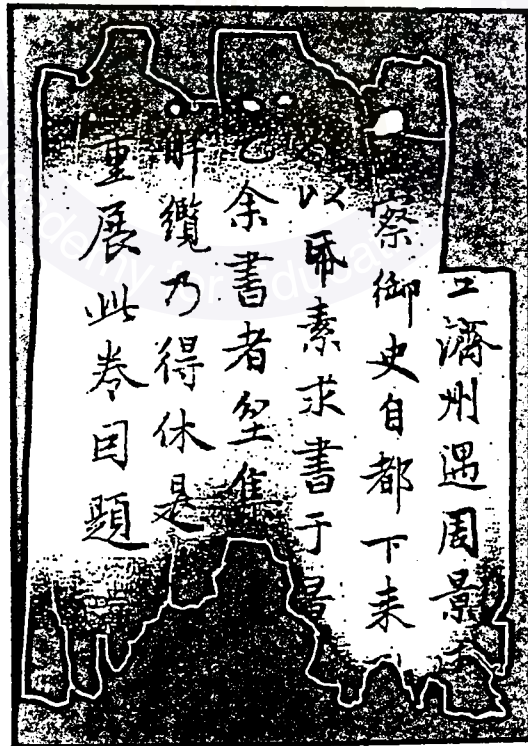 濟州遇周景
察御史自都下来
以帋素求書于
乞余書者坌集
解纜乃得休是
重展此卷因題
for